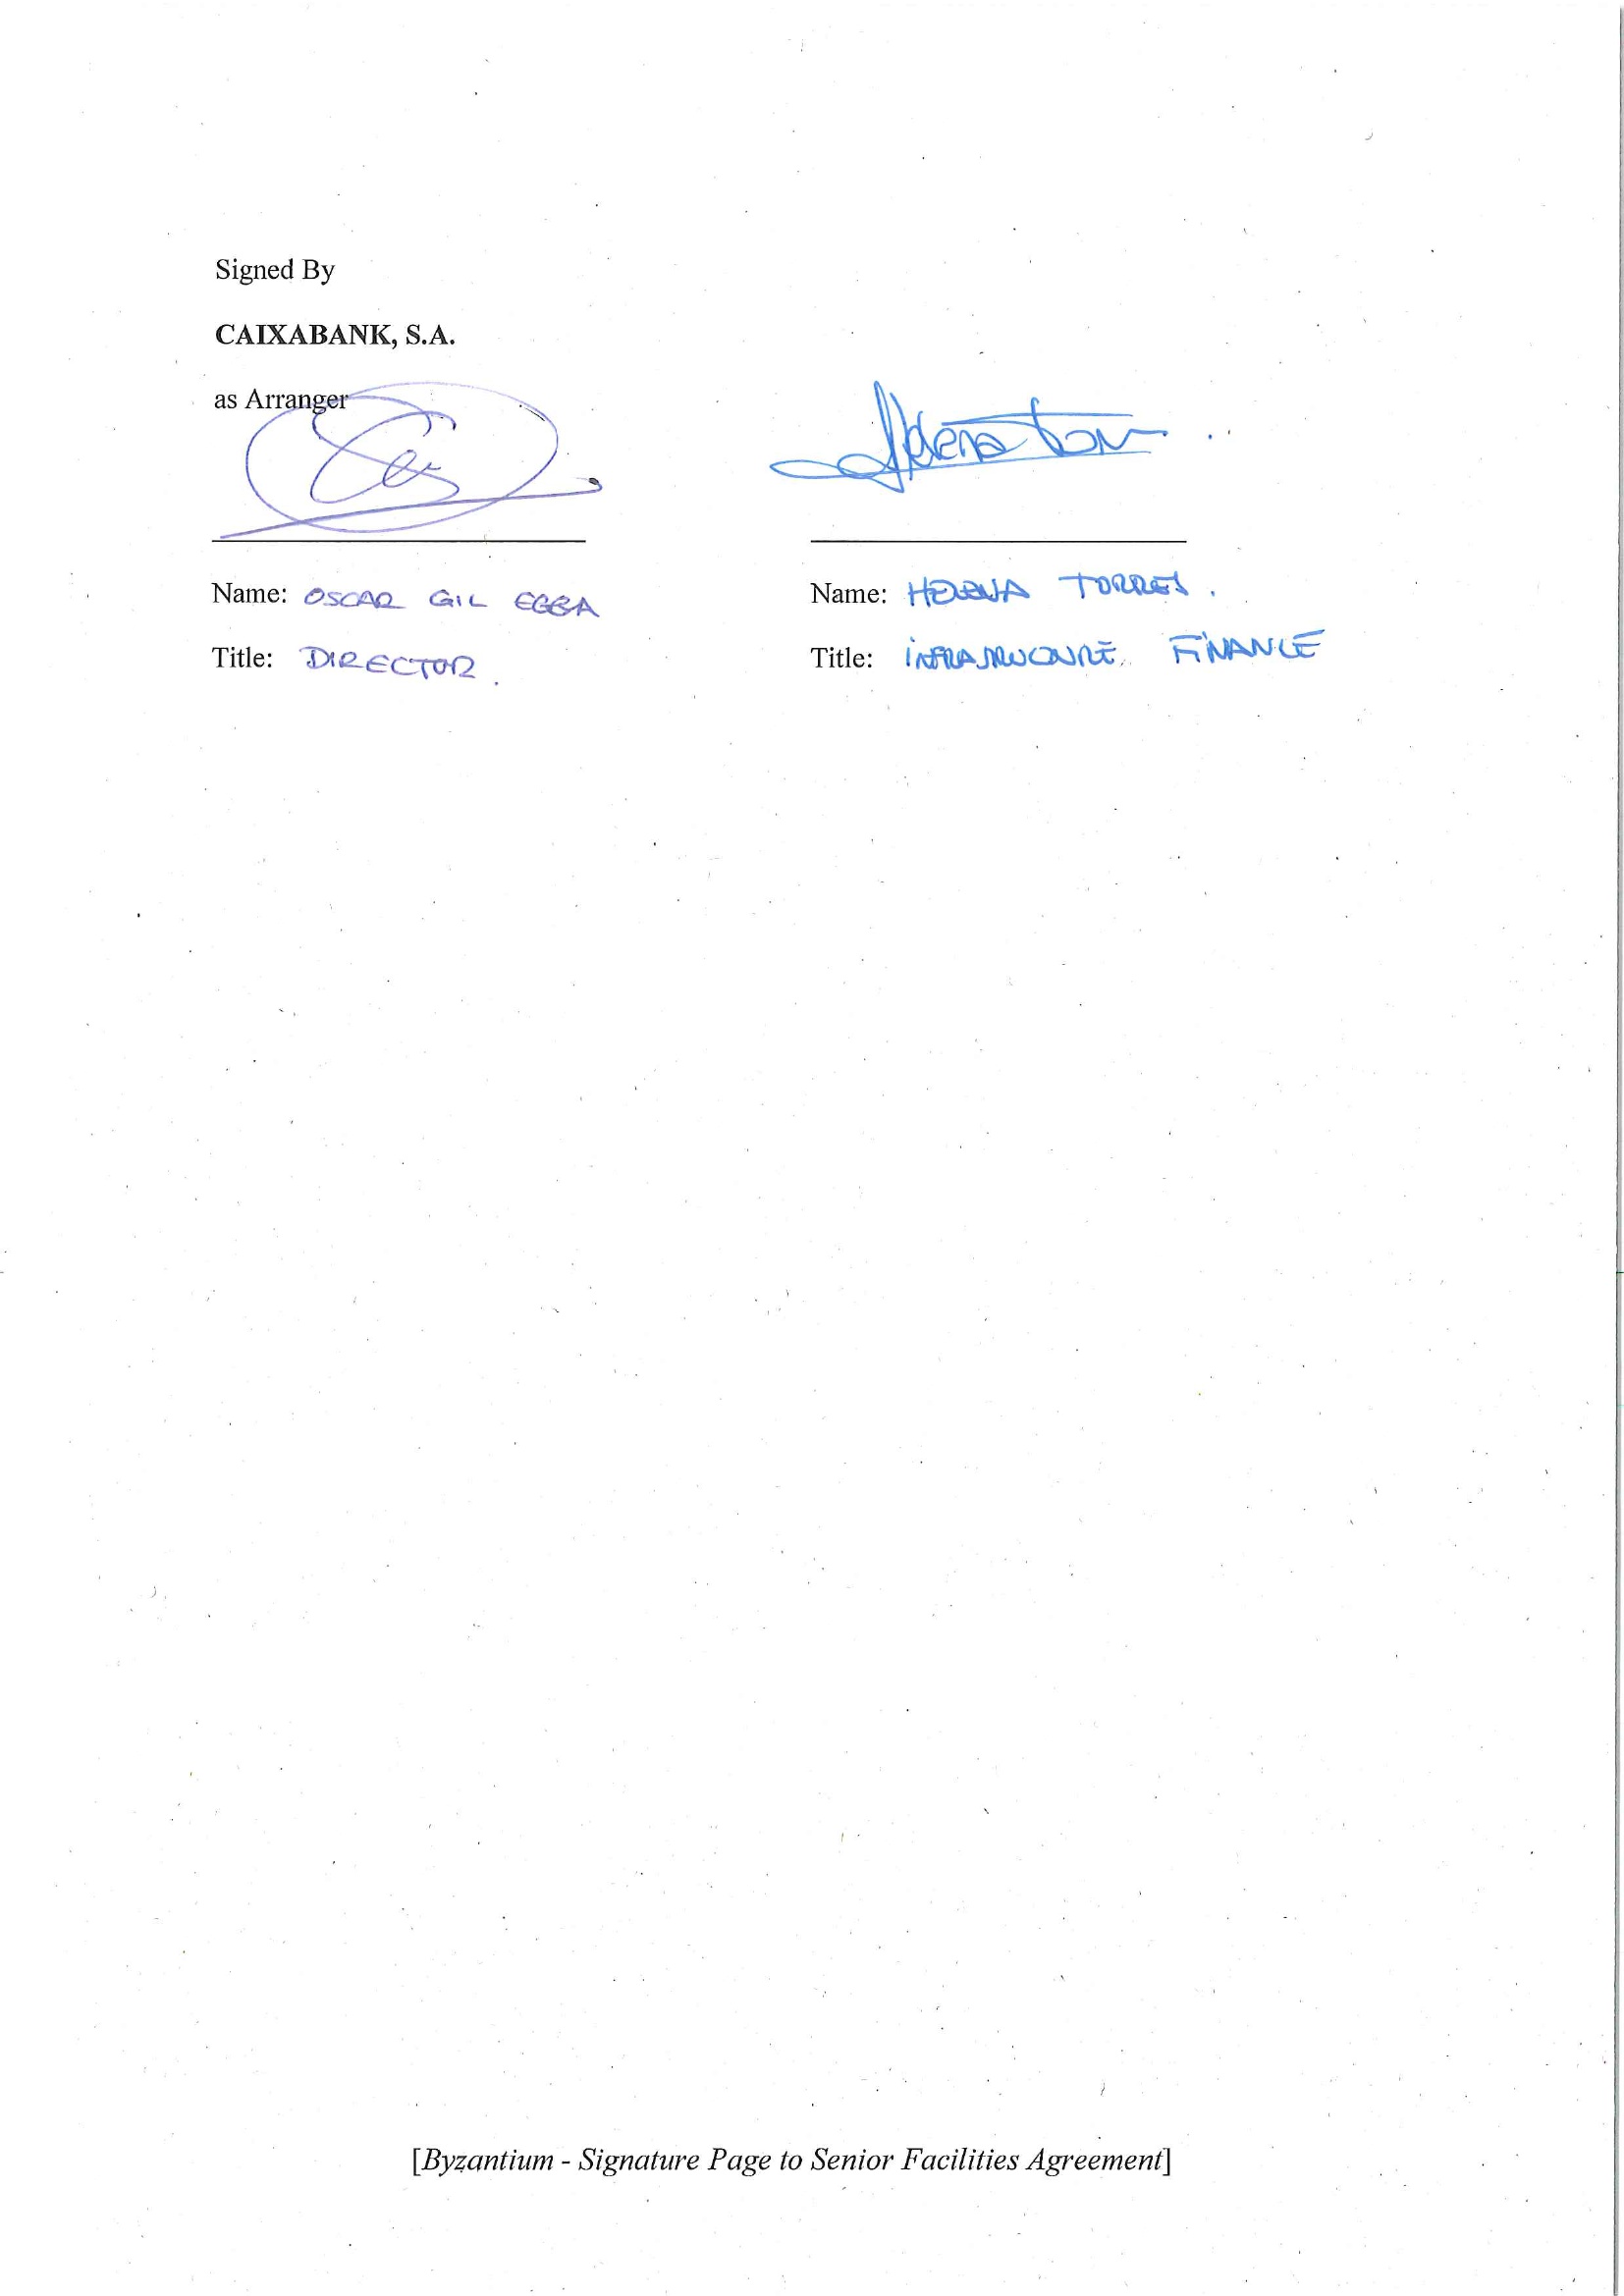 Signed By
CAIXABANK, S.A.
as Arranger
Name: OSCAR GIL EGEA
Name: HELENA TORRES.
Title: DIRECTOR.
Title: INFRASTRUCTURE FINANCE
[Byzantium - Signature Page to Senior Facilities Agreement]